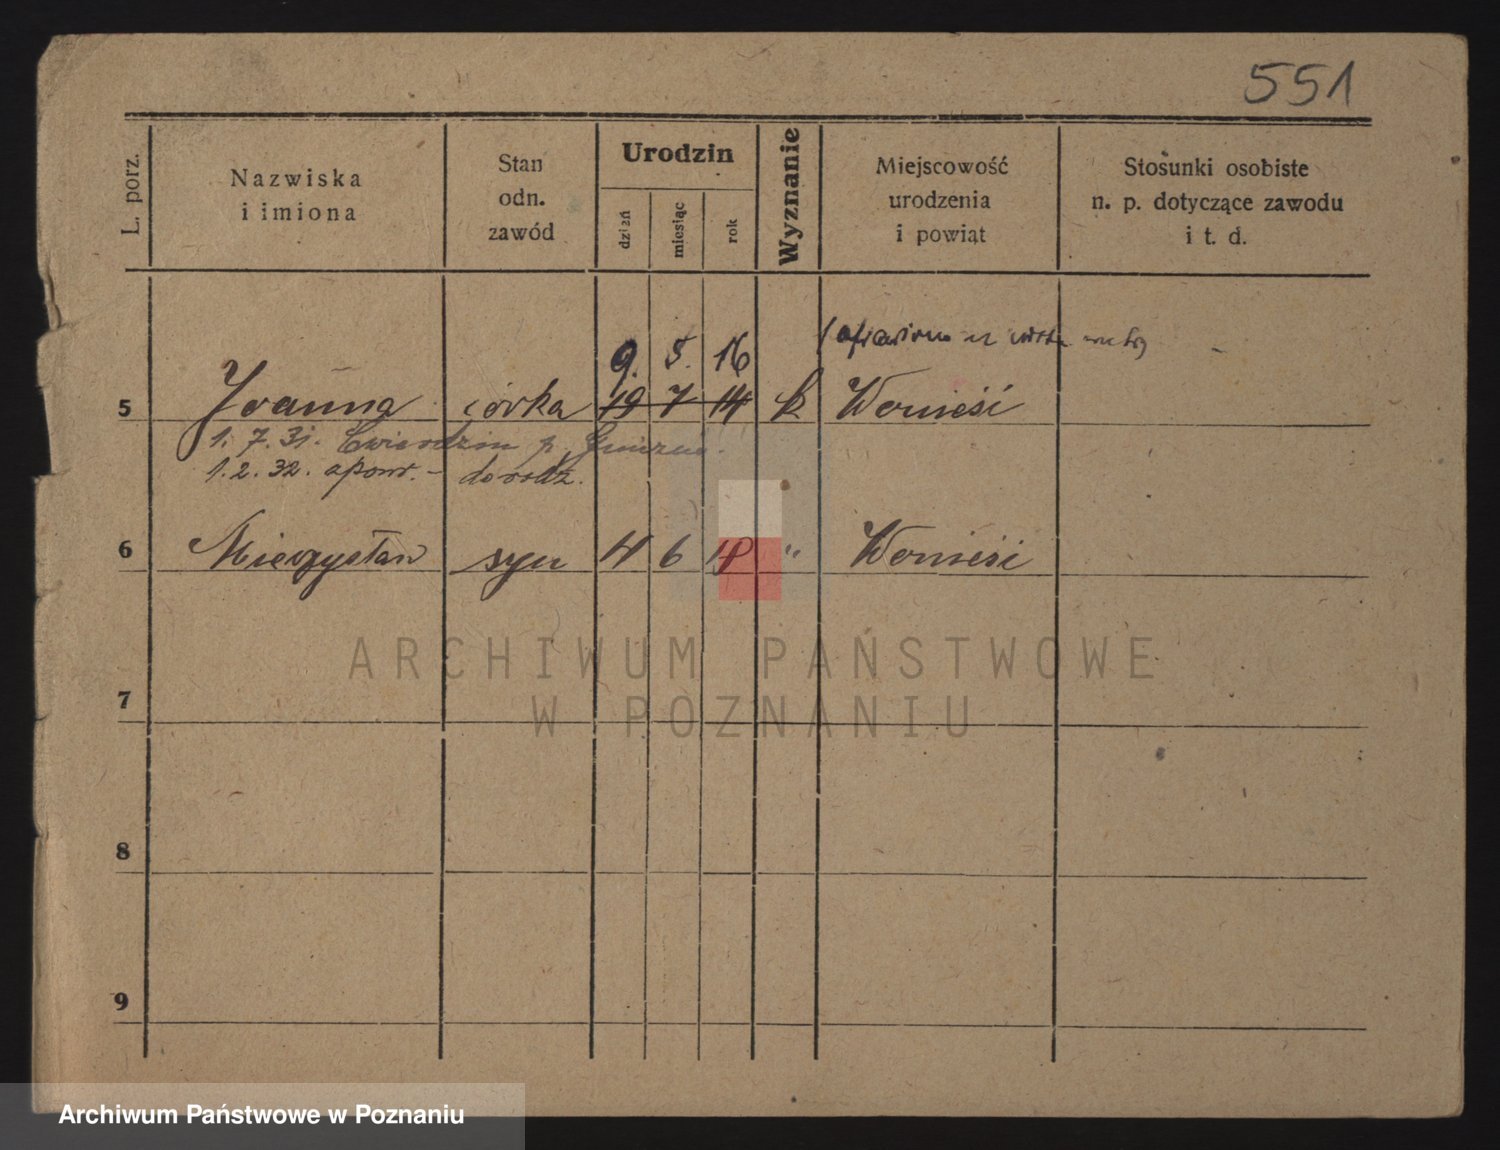 551
L. porz.
Nazwiska
i imiona
Stan
odn.
zawód
Urodzin
dzień
miesiąc
rok
Wyznanie
Miejscowość
urodzenia
i powiat
Stosunki osobiste
n. p. dotyczące zawodu
i t. d.
9. 5. 16
5 Joanna córka 19 7 14 k Wonieść
1. 7. 31. p. Gniezno.
1. 2. 32. do rodz.
6 Mieczysław syn 4 6 18 " Wonieść
ARCHIWUM PAŃSTWOWE
W POZNANIU
7
8
9
Archiwum Państwowe w Poznaniu